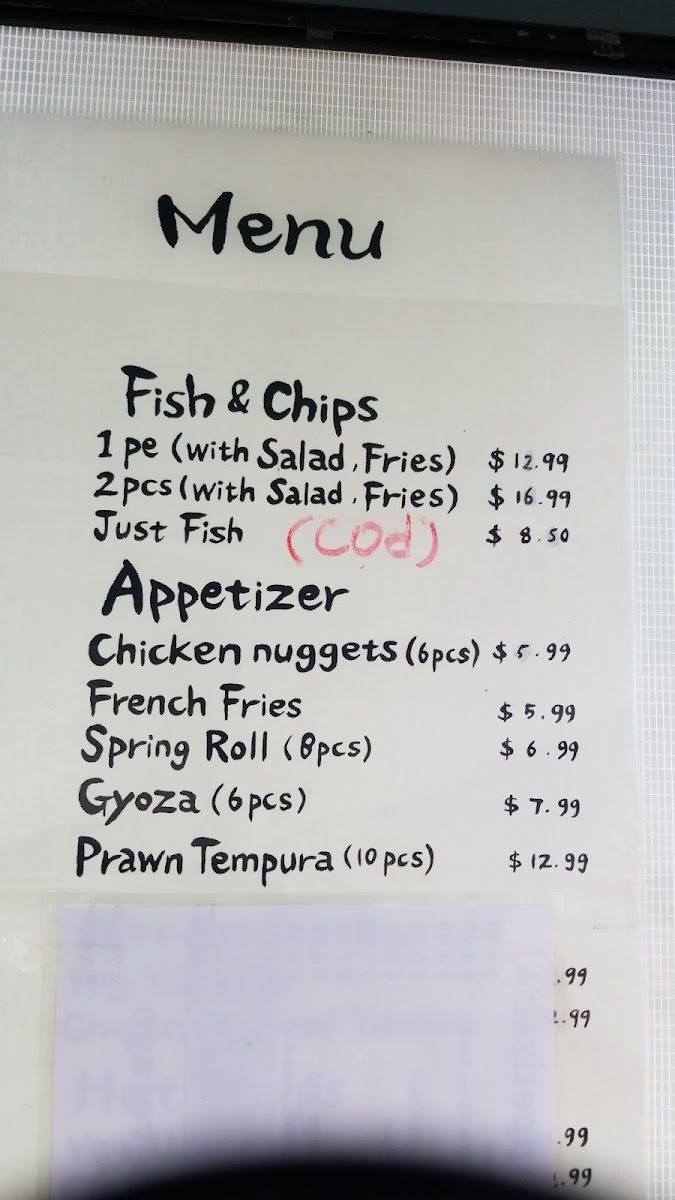 Menu
Fish & Chips
1 pe (with Salad, Fries) $12.99
2pcs (with Salad, Fries) $16.99
Just Fish (COd) $8.50
Appetizer
Chicken nuggets (6pcs) $5.99
French Fries $5.99
Spring Roll (8pcs) $6.99
Gyoza (6pcs) $7.99
Prawn Tempura (10pcs) $12.99
.99
.99
.99
.99